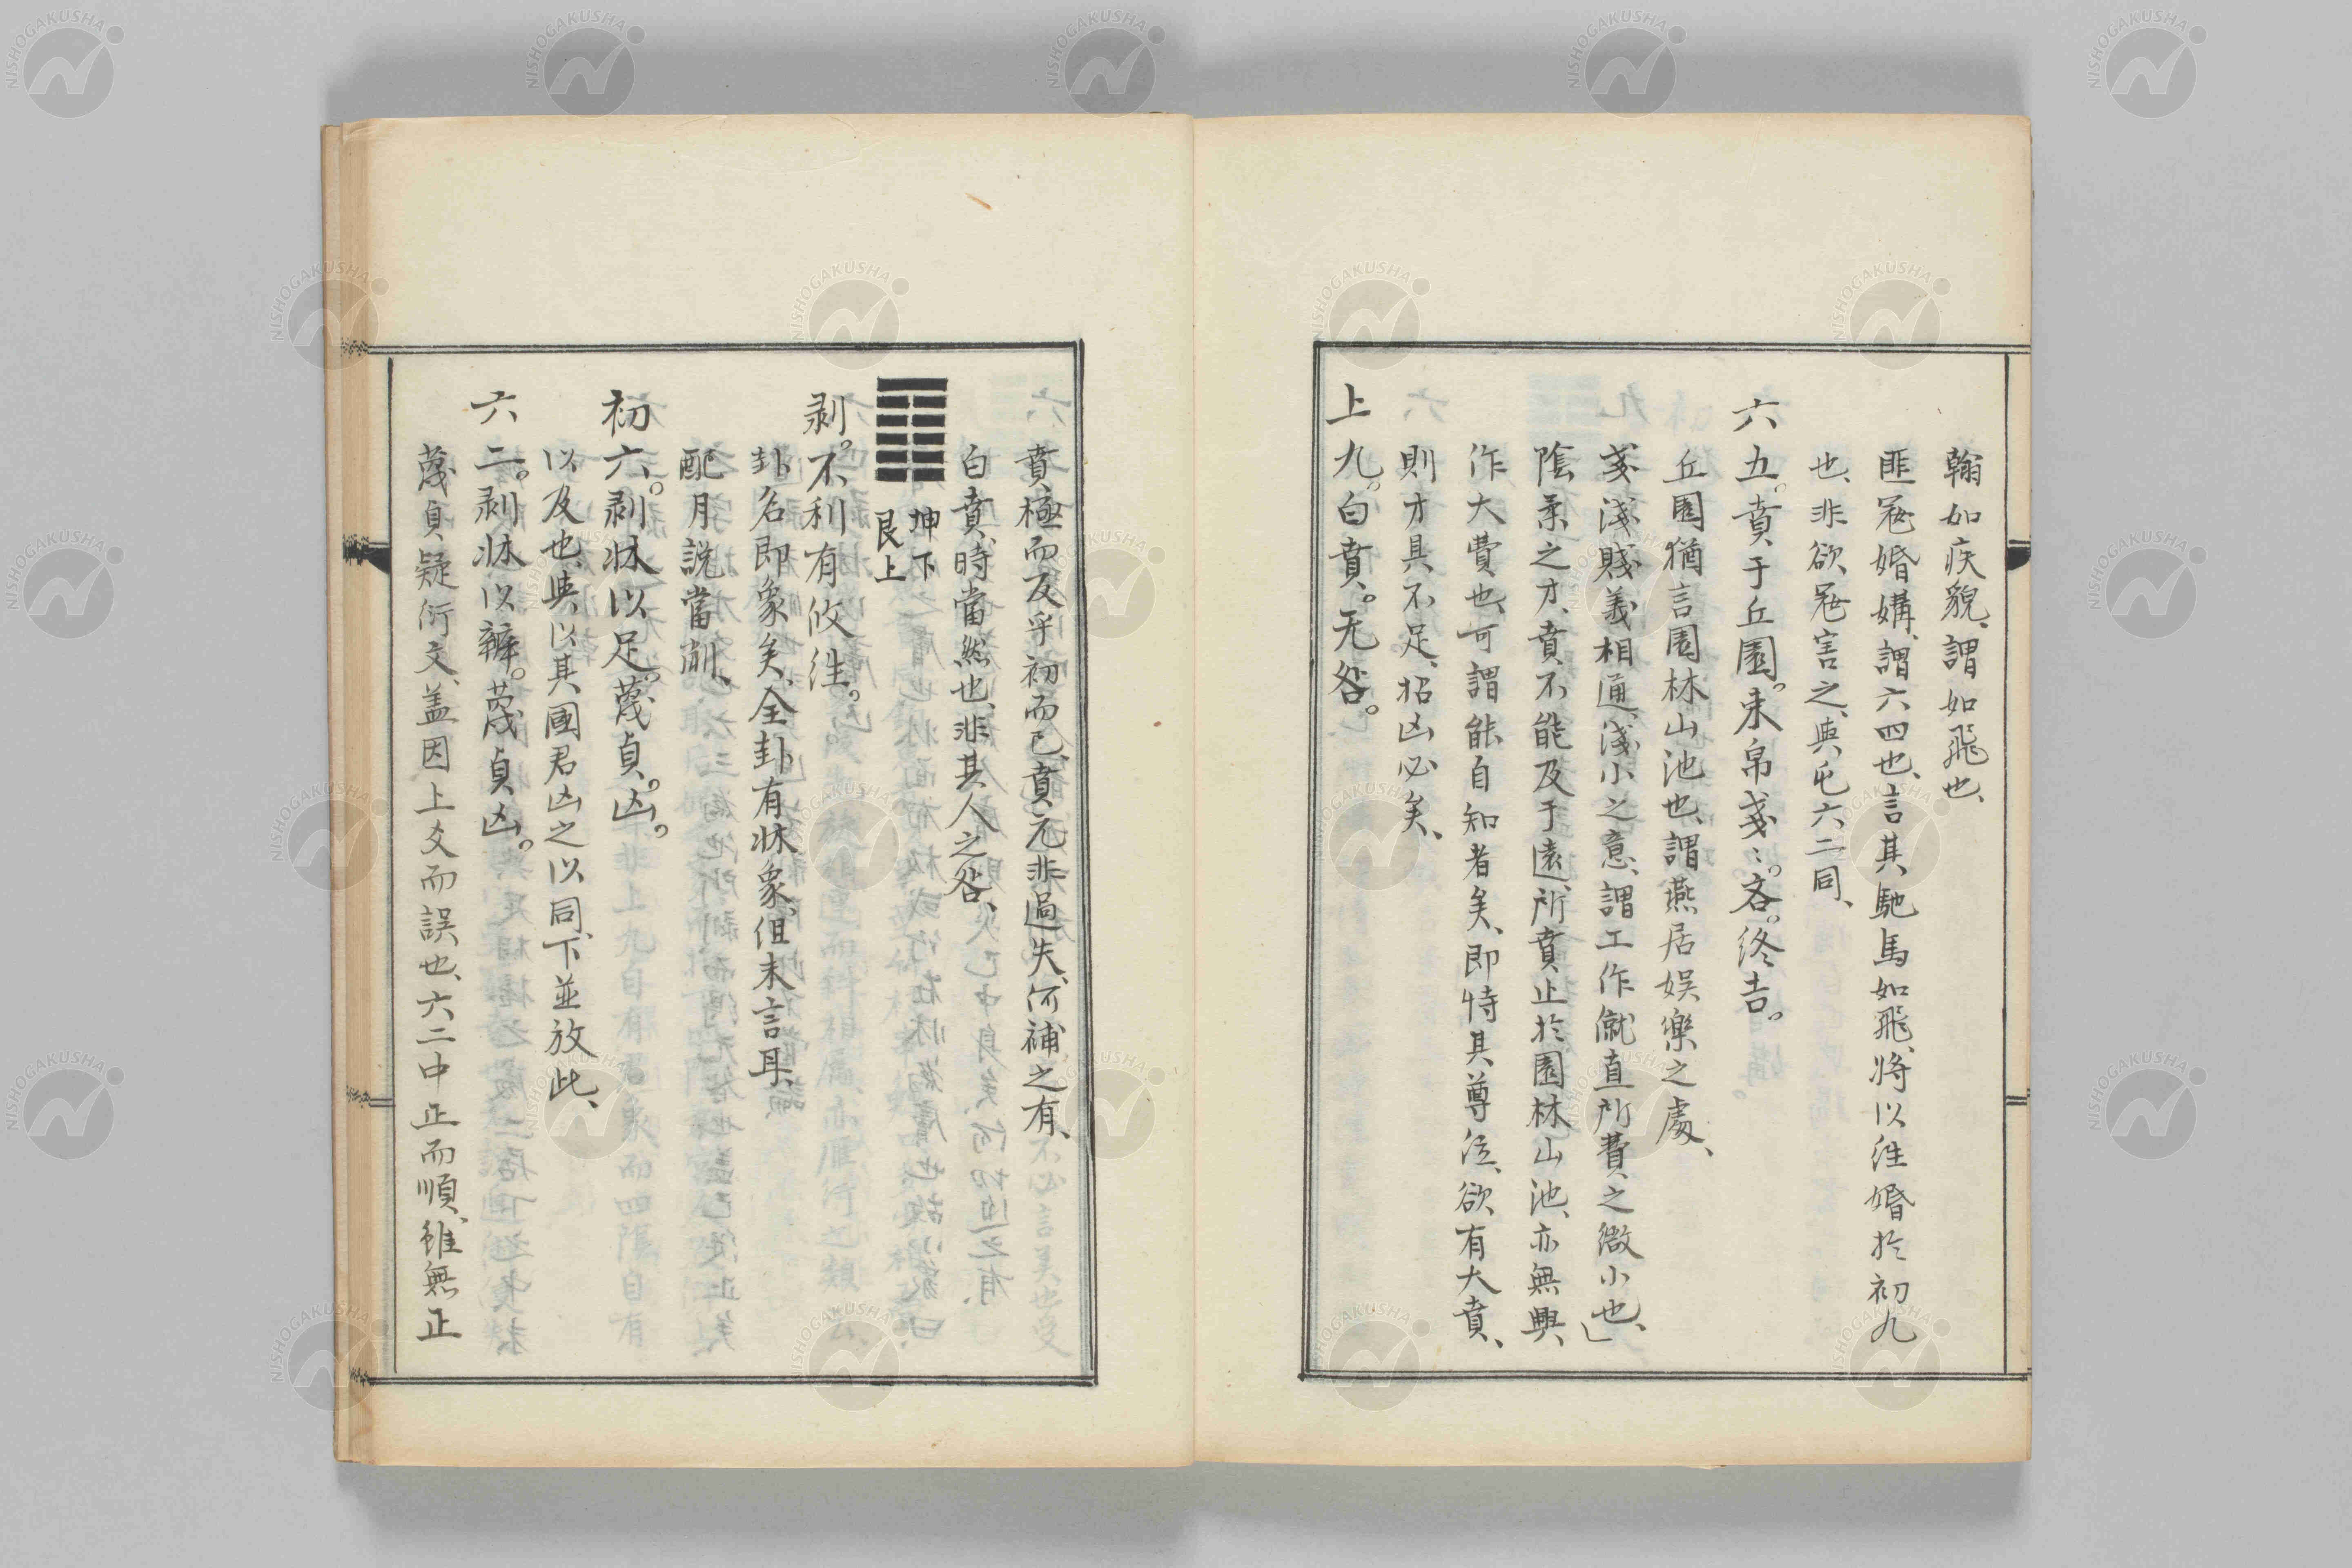 翰如疾貌、謂如飛也、
匪寇婚媾、謂六四也、言其馳馬如飛、將以往婚於初九
也、非欲寇害之、與屯六二同、
六五。賁于丘園。束帛戔〻。吝。終吉。
丘園猶言園林山池也、謂燕居娯樂之處、
戔淺賤義相通、淺小之意、謂工作僦直所費之微小也、」
陰柔之才、賁不能及于遠、所賁止於園林山池、亦無興
作大費也、可謂能自知者矣、即恃其尊位、欲有大賁、
則才具不足、招凶必矣、
上九。白賁。无咎。
賁極而反乎初而已、賁元非過失、何補之有、
白賁、時當然也、非其人之咎、
坤下
艮上
剥。不利有攸往。
卦名即象矣、全卦有牀象、但未言耳、
配月説當削、
初六。剥牀以足。蔑貞。凶。
以及也、與以其國君凶之以同、下並放此、
六二。剥牀以辨。蔑貞凶。
蔑貞、疑衍文、盖因上爻而誤也、六二中正而順、雖無正